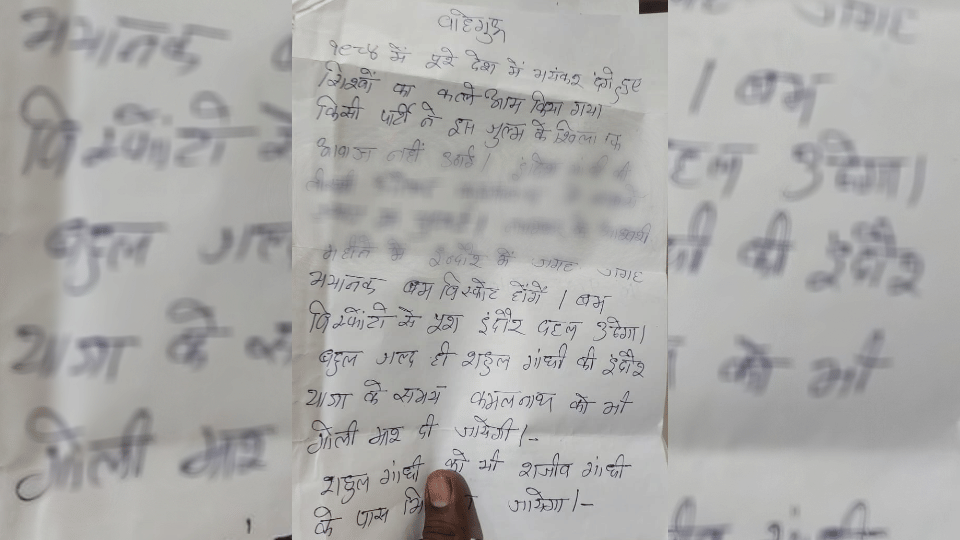 वाहेगुरु
१९८४ में पूरे देश में भयंकर दंगे हुए
सिखों का कत्ले आम किया गया
किसी पार्टी ने इस जुल्म के खिलाफ
आवाज नहीं उठाई।
महीने में इन्दौर में जगह जगह
भयानक बम विस्फोट होंगें। बम
विस्फोटों से पूरा इंदौर दहल उठेगा।
बहुत जल्द ही राहुल गांधी की इंदौर
यात्रा के समय कमलनाथ को भी
गोली मार दी जायेगी।-
राहुल गांधी को भी राजीव गांधी
के पास जायेगा।-